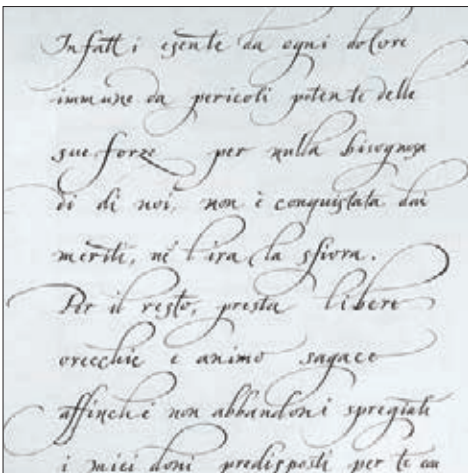 Infatti esente da ogni dolore
immune da pericoli potente delle
sue forze per nulla bisognosa
di di noi, non è conquistata dai
meriti, nè l'ira la sfiora.
Per il resto, presta libere
orecchie e animo sagace
affinchè non abbandoni spregiati
i miei doni predisposti per te con